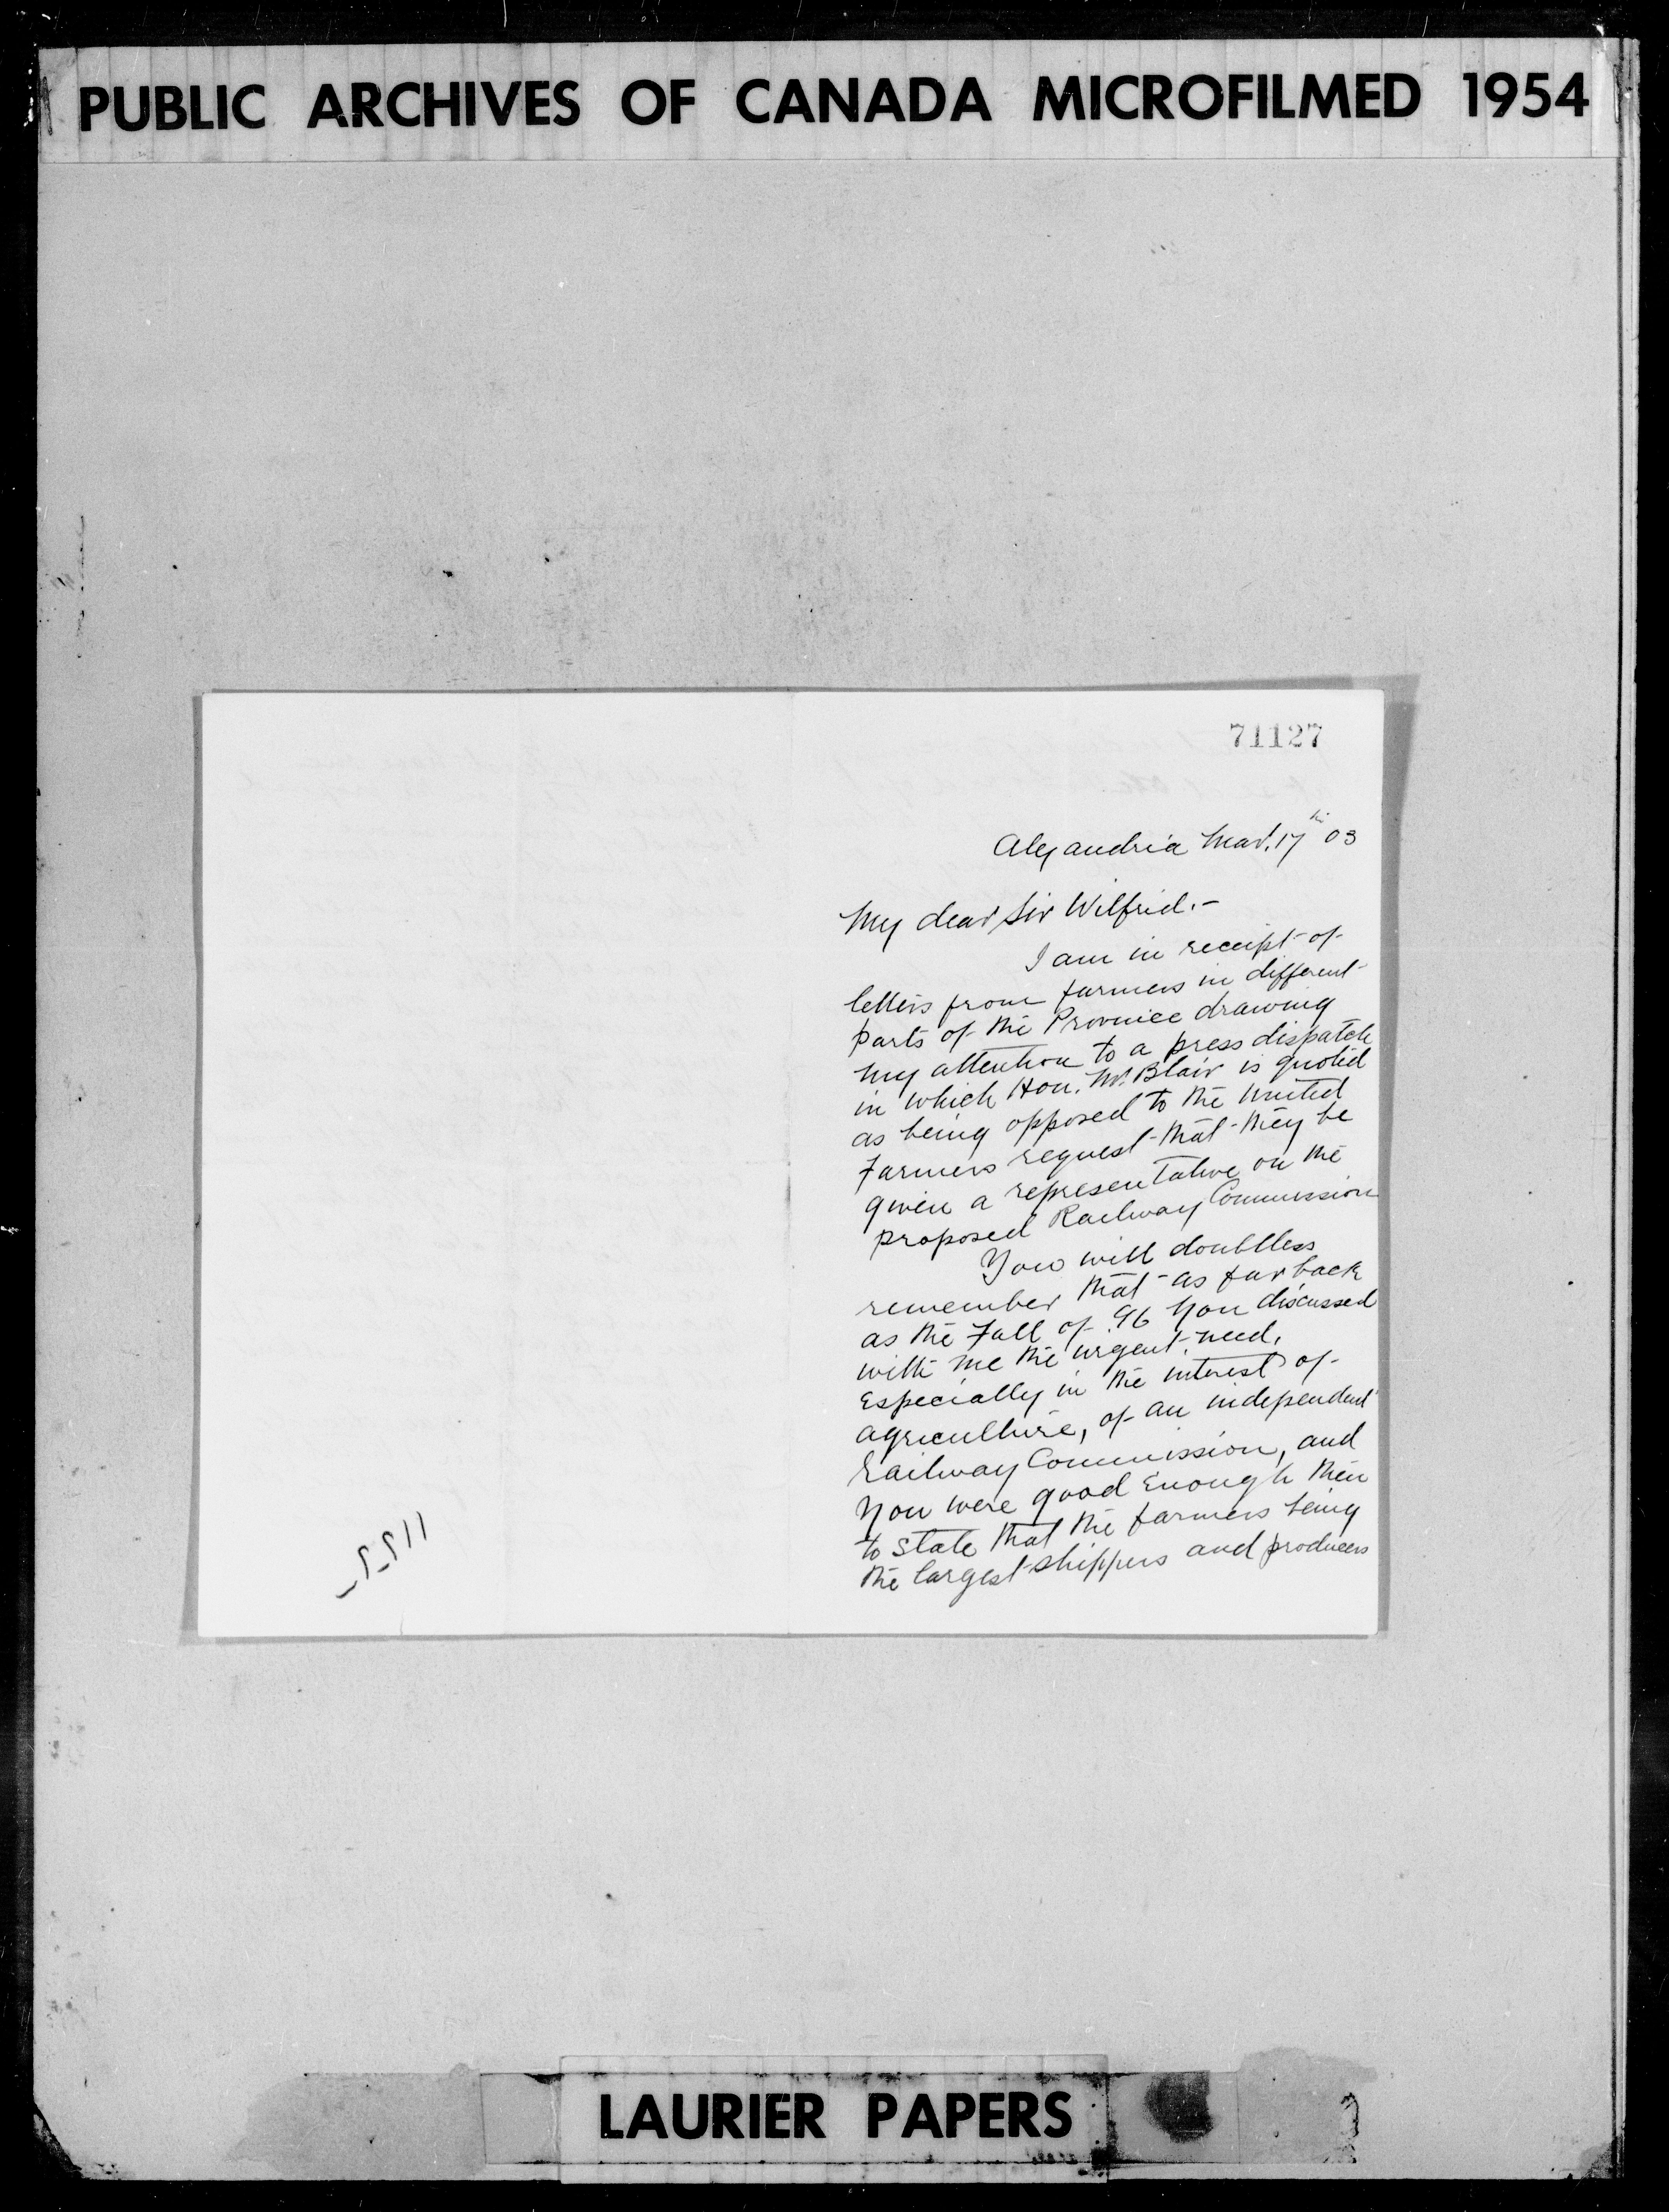 PUBLIC ARCHIVES OF CANADA MICROFILMED 1954
71127
Alexandria Mar. 17th 03
My dear Sir Wilfrid.-
I am in receipt of
letters from farmers in different
parts of the Province drawing
my attention to a press dispatch
in which Hon. Mr. Blair is quoted
as being opposed to the united
Farmers request that they be
given a representative on the
proposed Railway Commission
You will doubtless
remember that as far back
as the Fall of 96 you discussed
with me the urgent need,
Especially in the interest of
agriculture, of an independent
Railway Commission, and
you were good Enough then
to state that the farmers being
the largest shippers and producers
LAURIER PAPERS